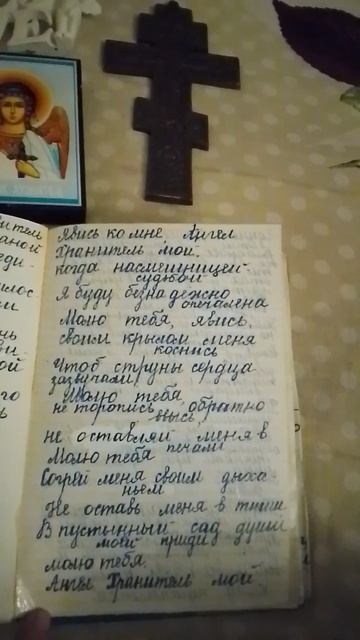 Явись ко мне Ангел
Хранитель мой.
Когда насмешницей
судьбой
Я буду безнадежно
опечалена
Молю тебя, явись,
своим крылом меня
коснись
Чтоб струны сердца
зазвучали,
Молю тебя
не торопись обратно
ввысь,
не оставляй меня в
печали
Молю тебя
Согрей меня своим дыха-
ньем
Не оставь меня в тиши
В пустынный сад души
моей приди
молю тебя.
Ангел Хранитель мой